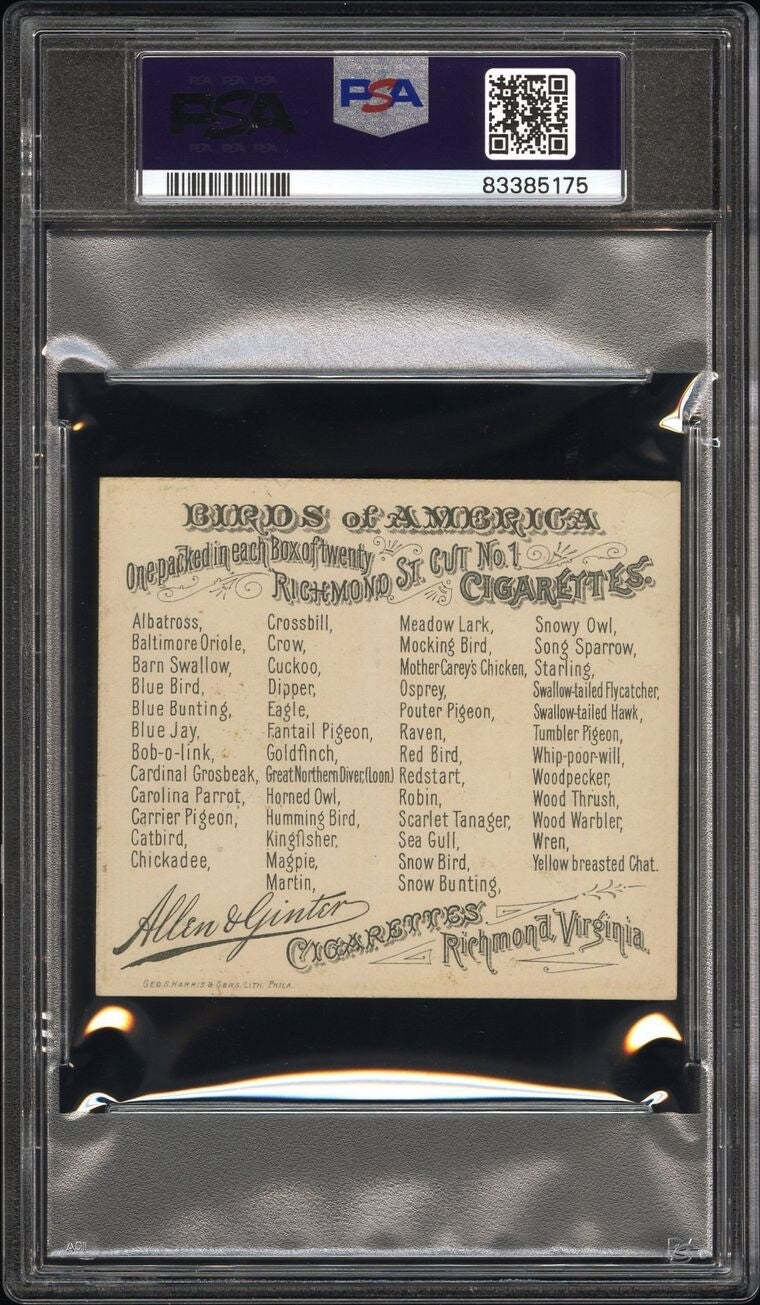 PSA PSA PSA
PSA
PSA PSA PSA
PSA
83385175
BIRDS of AMERICA
One packed in each Box of twenty
RICHMOND ST. CUT No. 1 CIGARETTES.
Albatross,
Baltimore Oriole,
Barn Swallow,
Blue Bird,
Blue Bunting,
Blue Jay,
Bob-o-link,
Cardinal Grosbeak,
Carolina Parrot,
Carrier Pigeon,
Catbird,
Chickadee,
Crossbill,
Crow,
Cuckoo,
Dipper,
Eagle,
Fantail Pigeon,
Goldfinch,
Great Northern Diver, (Loon)
Horned Owl,
Humming Bird,
Kingfisher,
Magpie,
Martin,
Meadow Lark,
Mocking Bird,
Mother Carey's Chicken,
Osprey,
Pouter Pigeon,
Raven,
Red Bird,
Redstart,
Robin,
Scarlet Tanager,
Sea Gull,
Snow Bird,
Snow Bunting,
Snowy Owl,
Song Sparrow,
Starling,
Swallow-tailed Flycatcher,
Swallow-tailed Hawk,
Tumbler Pigeon,
Whip-poor-will,
Woodpecker,
Wood Thrush,
Wood Warbler,
Wren,
Yellow breasted Chat.
Allen & Ginter
CIGARETTES
Richmond, Virginia.
GEO. S. HARRIS & SONS. LITH. PHILA.